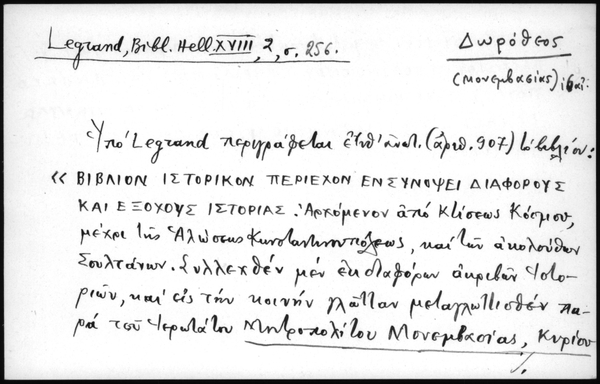 Legrand, Bibl. Hell. XVIII, 2, σ. 256.
Δωρόθεος
(Μονεμβασίας)
Ὑπό Legrand περιγράφεται (ἀριθ. 907) τό βιβλίον:
« ΒΙΒΛΙΟΝ ΙΣΤΟΡΙΚΟΝ ΠΕΡΙΕΧΟΝ ΕΝ ΣΥΝΟΨΕΙ ΔΙΑΦΟΡΟΥΣ
ΚΑΙ ΕΞΟΧΟΥΣ ΙΣΤΟΡΙΑΣ. Ἀρχόμενον ἀπό Κτίσεως Κόσμου,
μέχρι τῆς Ἁλώσεως Κωνσταντινουπόλεως, καί τῶν ἀκολούθων
Σουλτάνων. Συλλεχθέν μέν ἐκ διαφόρων ἀκριβῶν Ἱστο-
ριῶν, καί εἰς τήν κοινήν γλῶτταν μεταγλωττισθέν πα-
ρά τοῦ Ἱερωτάτου Μητροπολίτου Μονεμβασίας, Κυρίου